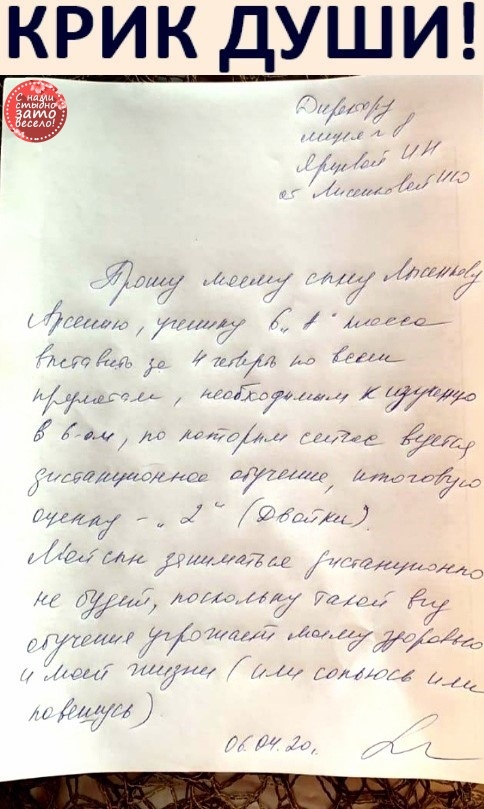 КРИК ДУШИ!
С нами
стыдно
зато
весело!
Директору
лицея №8
Ярцевой ИН
от Лысенковой
Прошу моему сыну Лысенкову
Арсению, ученику 6 „А" класса
выставить за 4 четверть по всем
предметам, необходимым к изучению
в 6-ом, по которым сейчас ведется
дистанционное обучение, итоговую
оценку - „2" (Двойки).
Мой сын заниматься дистанционно
не будет, поскольку такой вид
обучения угрожает моему здоровью
и моей жизни (или сопьюсь или
повешусь)
06.04.20г.